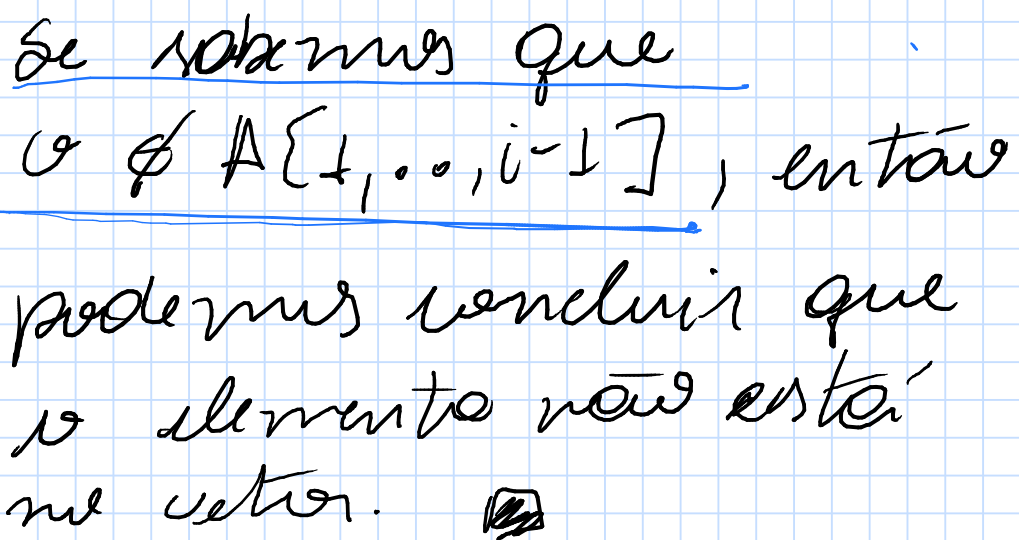 Se sabemos que
v ∉ A[1,..,i-1], então
podemos concluir que
o elemento não está
no vetor.